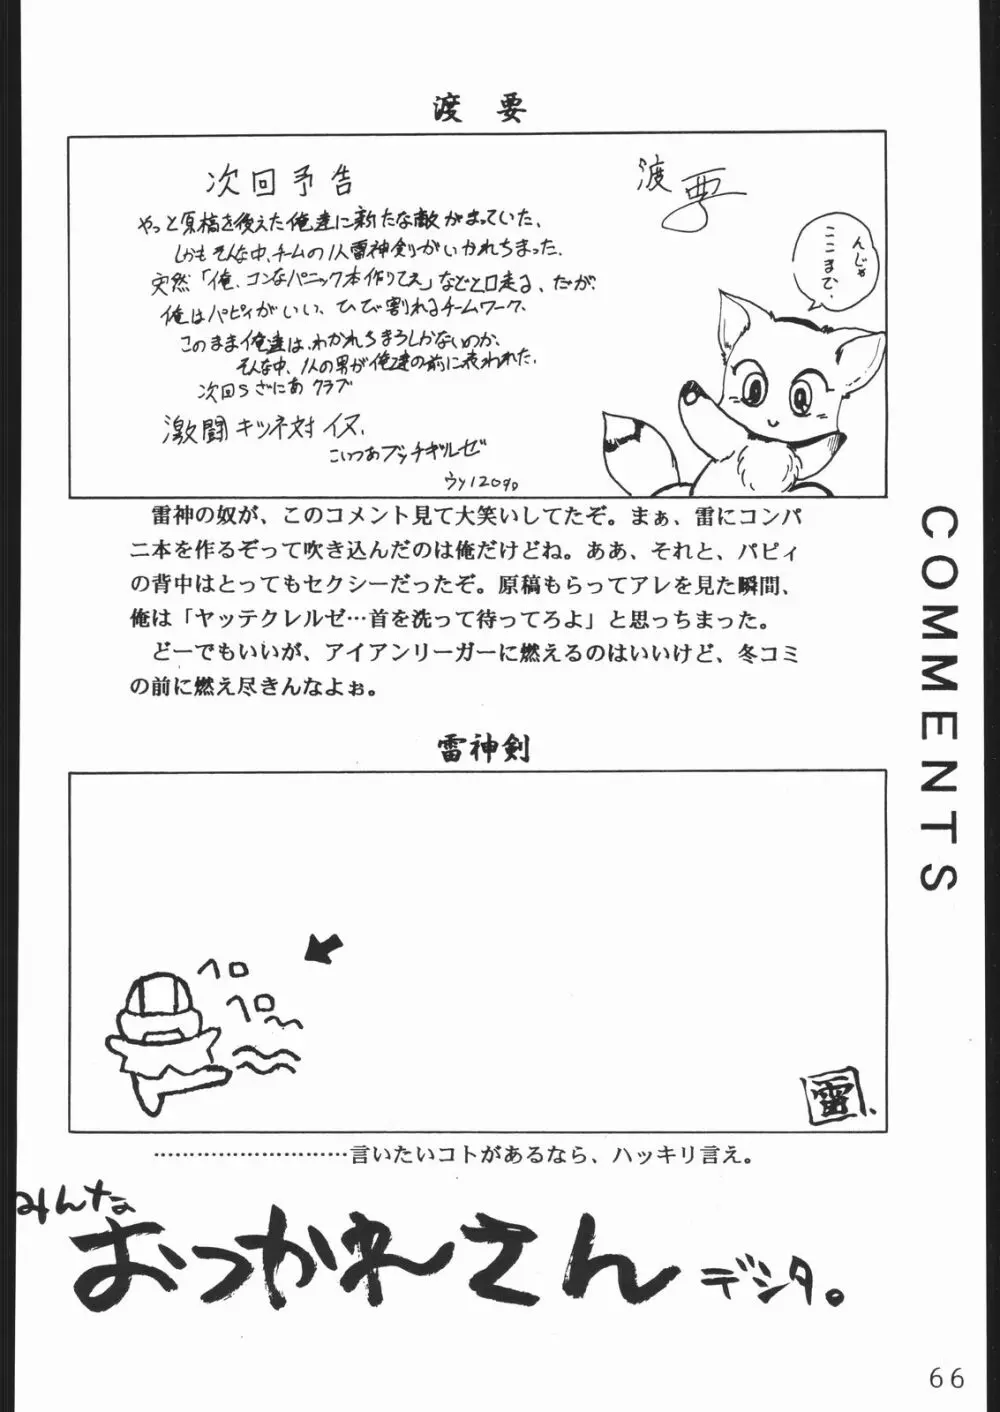 渡 要
次回予告
渡 要
やっと原稿を終えた俺達に新たな敵がまっていた、
しかもそんな中、チームの1人雷神剣がいかれちまった、
突然「俺、コンなパニック本作りてえ」などと口走る、だが、
俺はパピィがいい、ひび割れるチームワーク、
このまま俺達は、わかれちまうしかないのか、
そんな中、1人の男が俺達の前に表われた、
次回Sざにあ クラブ
激闘キツネ対イヌ、
こいつあブッチギルゼ
んじゃ
ここまで、
雷神の奴が、このコメント見て大笑いしてたぞ。まぁ、雷にコンパ
ニ本を作るぞって吹き込んだのは俺だけどね。ああ、それと、パピィ
の背中はとってもセクシーだったぞ。原稿もらってアレを見た瞬間、
俺は「ヤッテクレルゼ…首を洗って待ってろよ」と思っちまった。
どーでもいいが、アイアンリーガーに燃えるのはいいけど、冬コミ
の前に燃え尽きんなよぉ。
COMMENTS
雷神剣
ヘロ
ヘロ
雷
…………………………言いたいコトがあるなら、ハッキリ言え。
みんな
おつかれーさん
デシタ。
66